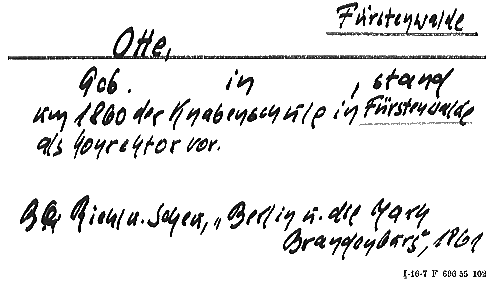 Fürstenwalde
Otte,
Geb. in , stand
um 1860 der Knabenschule in Fürstenwalde
als Konrektor vor.
Riehl u. Scheu, „Berlin u. die Mark
Brandenburg“, 1861
I-16-7 F 696 55 102